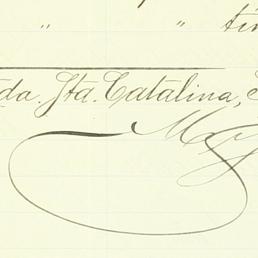 " " tin
da. Sta. Catalina,
May